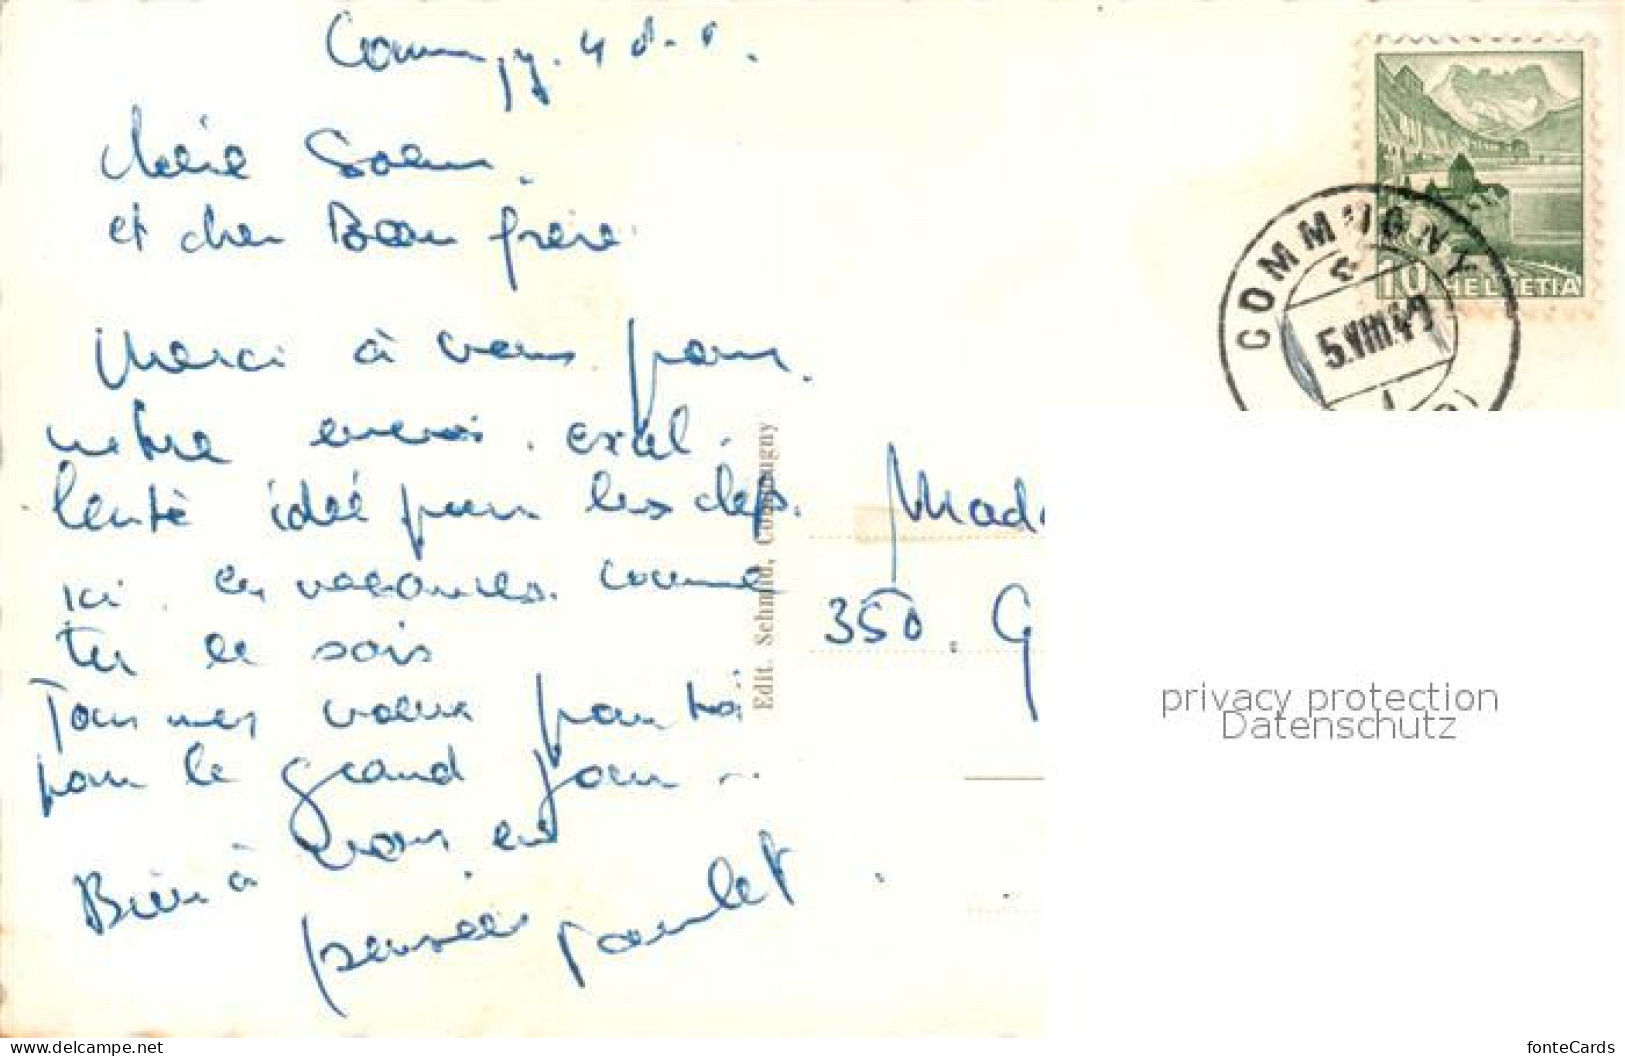 Commugny. 4 8.
Chère Soeur.
et cher Beau frère.
Merci à vous pour
votre envoi. exel-
lente idée pour les
ici. en vacances. comme
tu le sais
Tous mes voeux pour toi
pour le grand jour
Bien à vous en
pensée Paulet
Edit. Schmid, Commugny
Mad
350. G
COMMUGNY
5.VIII.49
10 HELVETIA
privacy protection
Datenschutz
www.delcampe.net
fonteCards